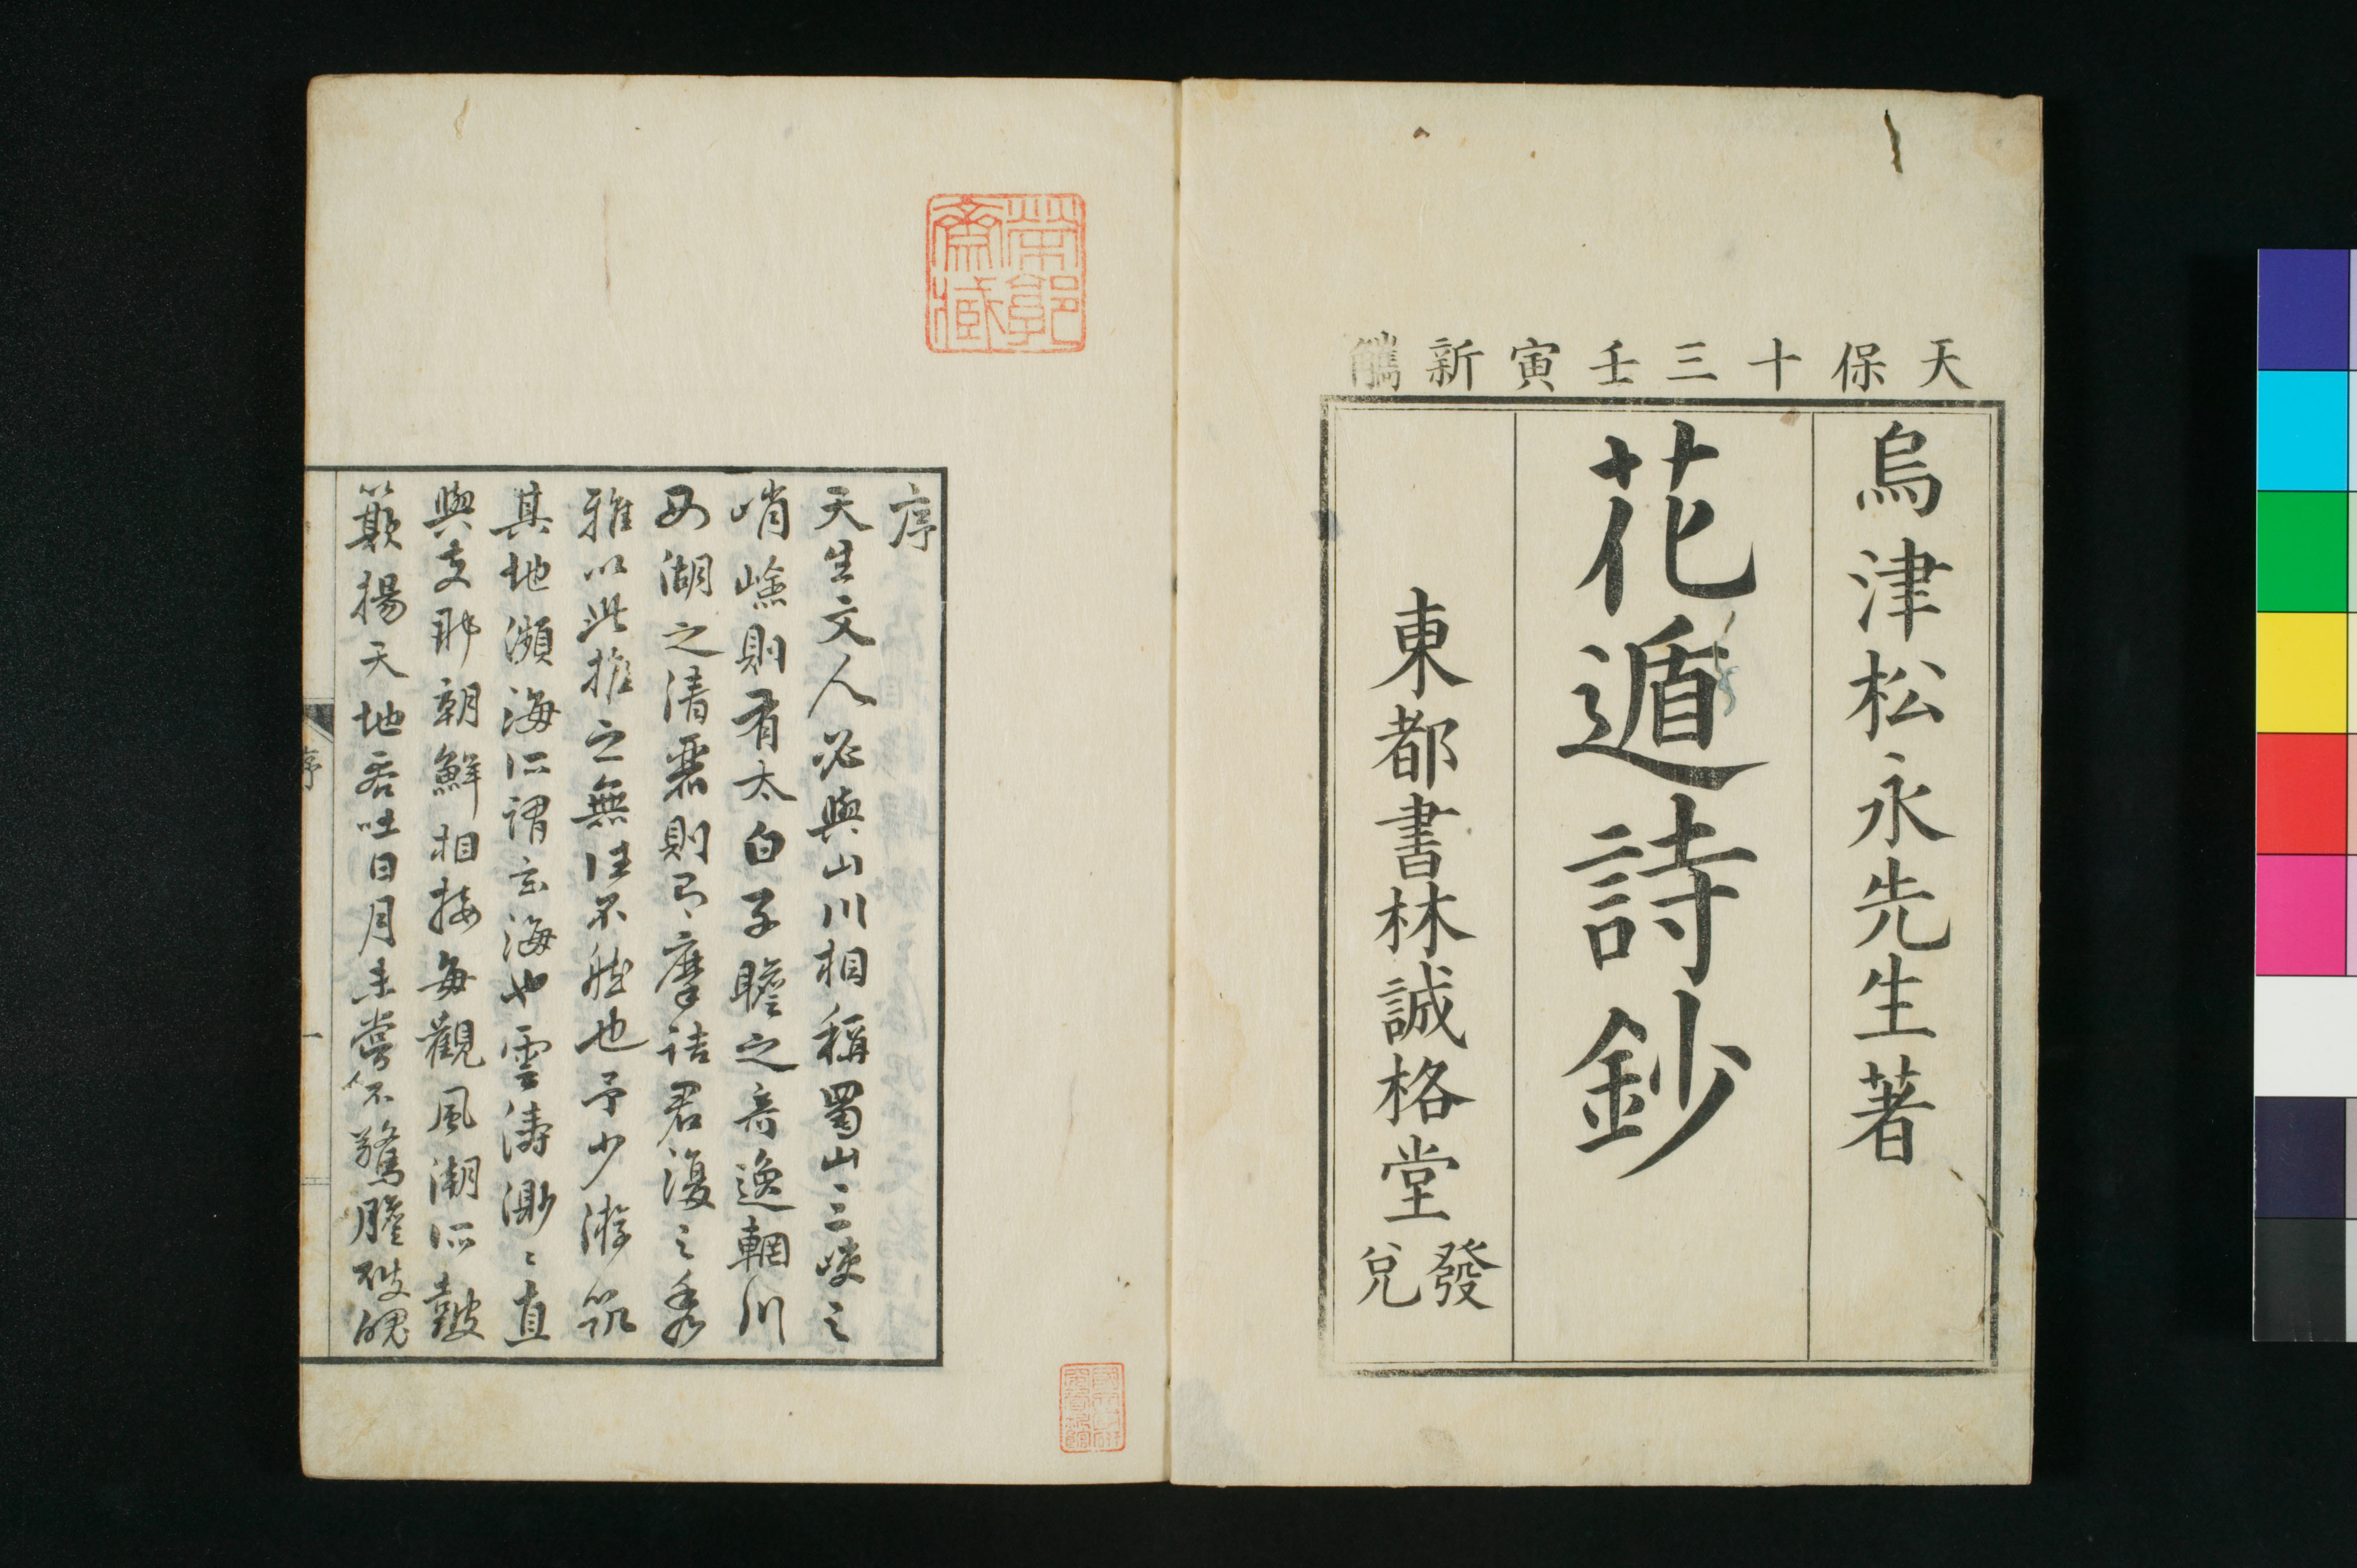 天保十三壬寅新鐫
烏津松永先生著
花遁詩鈔
東都書林誠格堂
發兌
序
天生文人必與山川相稱蜀山三峽之
峭嶮則有太白子瞻之奇逸輞川
西湖之清麗則有摩詰君復之秀
雅以此推之無往不然也予少游筑
其地瀕海所謂玄海也雲濤渺〻直
與支那朝鮮相接每觀風潮所皷
簸揚天地吞吐日月未嘗不驚膽破魄
序
一